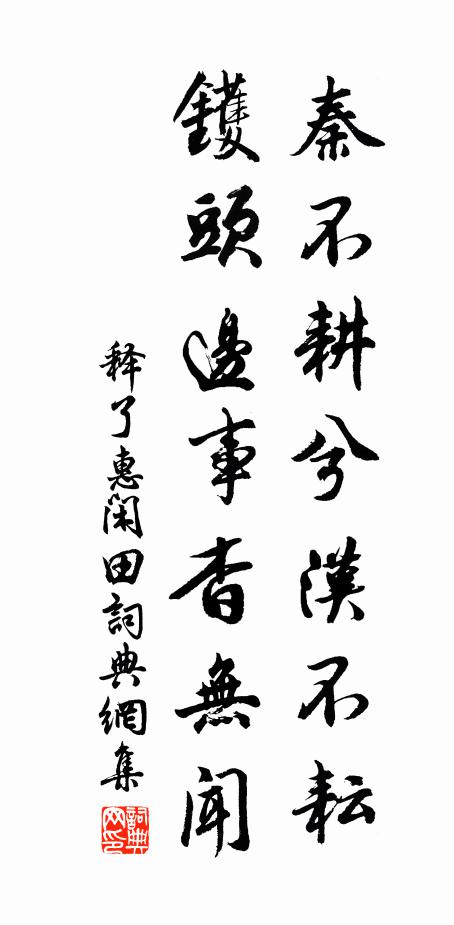 秦不耕兮漢不耘
钁頭邊事杳無聞
释了惠閑田詞典網集
詞典网印